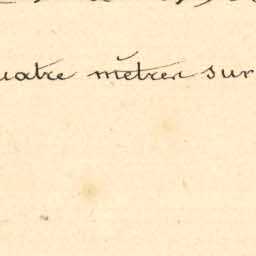 uatre mètres sur